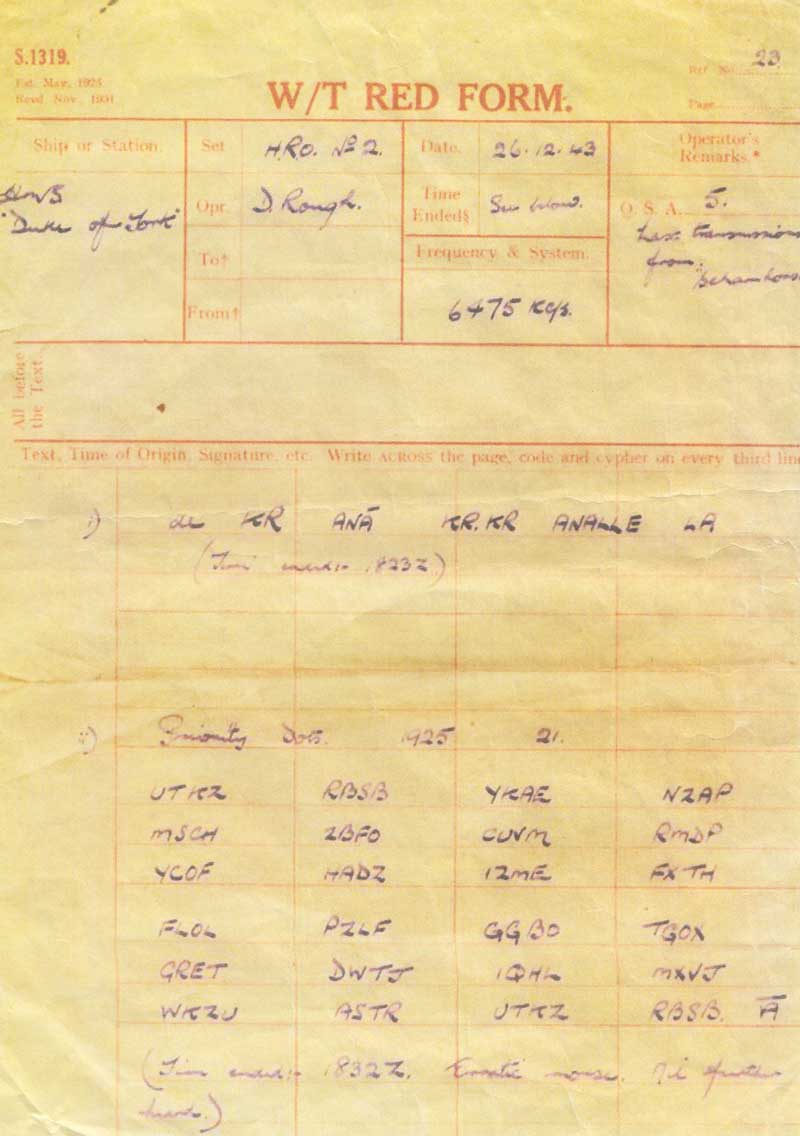 S.1319.
Est. May, 1925
Revd Nov. 1934
Ref No. 23
W/T RED FORM.
Page
Ship or Station.
Set
H.R.O. Nº 2.
Date.
26.12.43
Operator's
Remarks.*
HMS
"Duke of York"
Opr.
D. Rough.
Time
Ended§
See below.
Q. S. A. 5.
Last transmissions
from
"Scharnhorst
To†
Frequency & System.
From†
6475 Kc/s.
All before
the Text.
Text, Time of Origin, Signature, etc. Write ACROSS the page, code and cypher on every third line
1) de KR ANĀ KR.KR ANALLE LA
(Time ended:- 1823Z)
Priority Dots. 1925 21.
UTKZ RBSB YKAE NZAP
MSCH ZBFO CUVM RMDP
YCOF HADZ IZME FXTH
FLOL PZLF GGBO TGOX
GRET DWTJ IQHL MXVJ
WKZU ASTR UTKZ RBSB. Ā
(Time ended:- 1832Z. Erratic morse. Nil further
heard.)